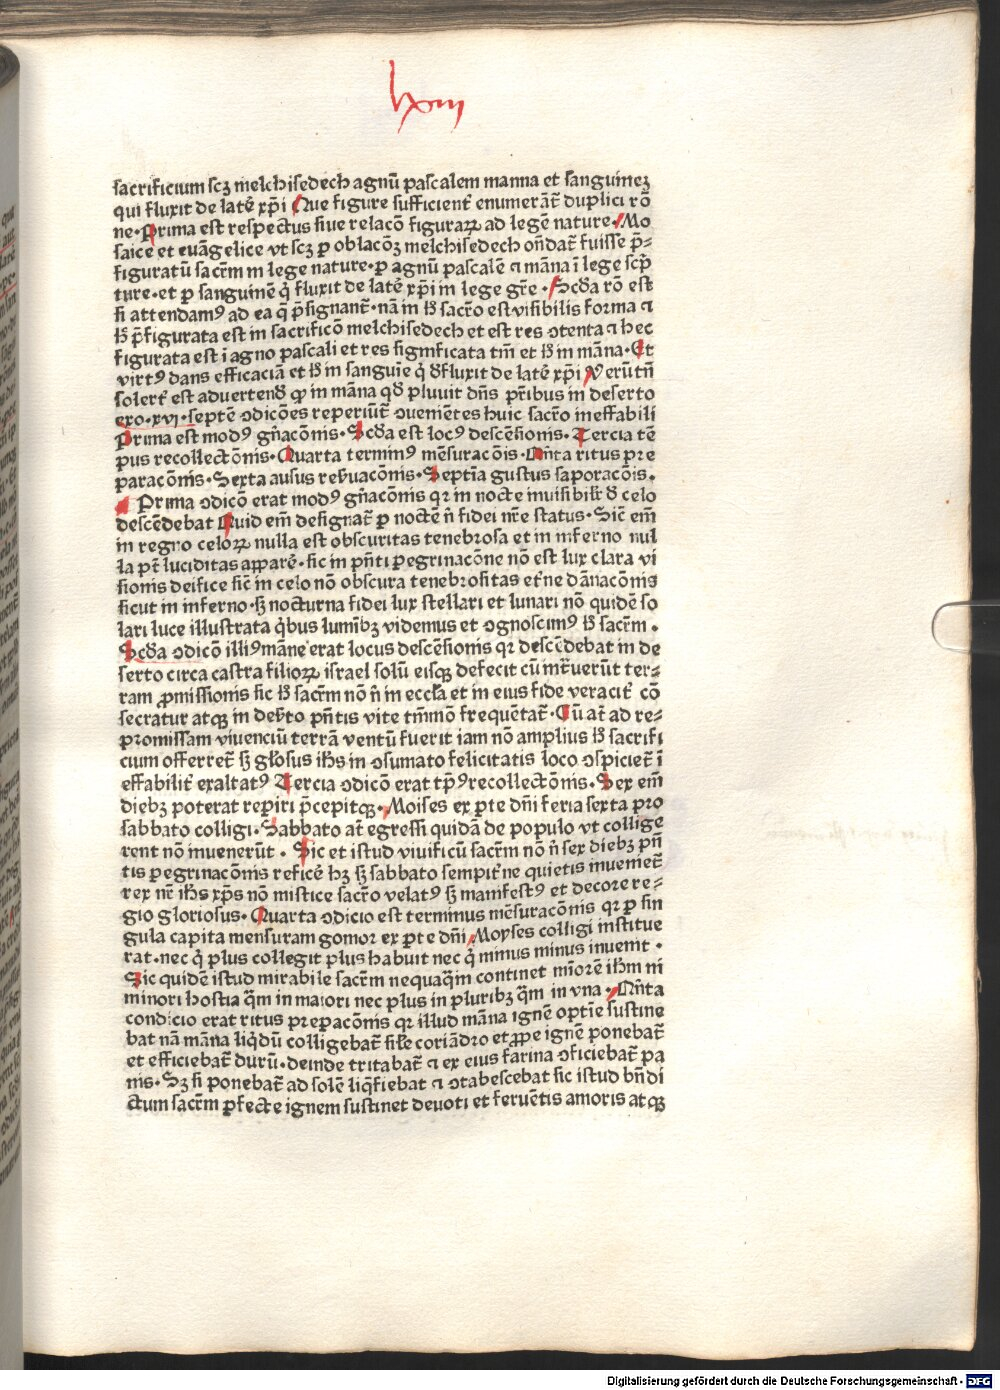 lxiii
sacrificium scꝫ melchisedech agnū pascalem manna et sanguineꝫ
qui fluxit de latē xp̄i Que figure sufficient̄ enumerāt̄ duplici rō
ne·Prima est respectus siue relacō figuraꝝ ad legē nature·Mo
saice et euāgelice vt scꝫ p oblacōꝫ melchisedech on̄dat̄ fuisse p̄⸗
figuratū sacr̄m in lege nature·p agnū pascalē ⁊ māna ī lege scp̄
ture·et p sanguinē q̇ fluxit de latē xp̄i in lege gr̄e·Scd̄a rō est
si attendamꝰ ad ea q̄ p̄signant̄·nā in h̄ sacr̄o est visibilis forma ⁊
h̄ p̄figurata est in sacrificō melchisedech et est res ↄtenta ⁊ hec
figurata est ī agno pascali et res significata tm̄ et h̄ in māna·Et
virtꝰ dans efficaciā et h̄ in sanguīe q̇ dfluxit de latē xp̄i Verūtn̄
solert̄ est aduertend̄ ꝙ in māna qd̄ pluuit dn̄s pr̄ibus in deserto
exo·xvi·septē ↄdicōes reperiūt̄ ↄueniētes huic sacr̄o ineffabili
Prima est modꝰ gn̄acōnis·Scd̄a est locꝰ descēsionis·Tercia tē
pus recollectōnis·Quarta terminꝰ mēsuracōis·Qn̄ta ritus pre
paracōnis·Sexta ausus reb̄uacōnis·Septīa gustus saporacōis.
Prima ↄdicō erat modꝰ gn̄acōnis qr in nocte inuisibilit̄ d̄ celo
descēdebat Quid em̄ designat̄ p noctē n̄ fidei nr̄e status·Sic̄ em̄
in regno celoꝝ nulla est obscuritas tenebrosa et in inferno nul
la pt̄ luciditas apparē·sic in pn̄ti pegrinacōne nō est lux clara vi
sionis deifice sic̄ in celo nō obscura tenebrositas et̄ne dānacōnis
sicut in inferno·sꝫ nocturna fidei lux stellari et lunari nō quidē so
lari luce illustrata q̇bus lumībꝫ videmus et ↄgnoscimꝰ h̄ sacr̄m.
Scd̄a ↄdicō illiꝰ māne erat locus descēsionis qr descēdebat in de
serto circa castra filioꝝ israel solū eisqꝫ defecit cū int̄uerūt ter⸗
ram ꝓmissionis sic h̄ sacr̄m nō n̄ in eccl̄a et in eius fide veracit̄ cō
secratur atqꝫ in deb̄to pn̄tis vite tm̄mō frequētat̄·Cū at̄ ad re⸗
promissam viuenciū terrā ventū fuerit iam nō amplius h̄ sacrifi
cium offerret̄ sꝫ glōsus ih̄s in ↄsumato felicitatis loco ↄspiciet̄ ī
effabilit̄ exaltatꝰ Tercia ↄdicō erat tp̄ꝰ recollectōnis·Sex em̄
diebꝫ poterat reperiri p̄cepitqꝫ·Moises ex pte dn̄i feria sexta pro
sabbato colligi·Sabbato at̄ egressi quidā de populo vt collige
rent nō inuenerūt·Sic et istud viuificū sacr̄m nō n̄ sex diebꝫ pn̄
tis pegrinacōnis reficē hꝫ sꝫ sabbato sempit̄ne quietis inueniet̄
rex nr̄ ih̄s xp̄s nō mistice sacr̄o velatꝰ sꝫ manifestꝰ et decore re⸗
gio gloriosus·Quarta ↄdicio est terminus mēsuracōnis qr p sin
gula capita mensuram gomor ex pte dn̄i Moyses colligi institue
rat·nec q̇ plus collegit plus habuit nec q̇ minus minus inuenit·
Sic quidē istud mirabile sacr̄m nequaq̄m continet miōrē ih̄m ni
minori hostia q̄m in maiori nec plus in pluribꝫ q̄m in vna·Qn̄ta
condicio erat ritus prepacōnis qr illud māna ignē optīe sustine
bat nā māna liq̇dū colligebat̄ sil̄e coriādro et ꝓpe ignē ponebat̄
et efficiebat̄ durū·deinde tritabat̄ ⁊ ex eius farina ↄficiebat̄ pa
nis·Sꝫ si ponebat̄ ad solē liq̄fiebat ⁊ ↄtabescebat sic istud bn̄di
ctum sacr̄m pfecte ignem sustinet deuoti et feruētis amoris atqꝫ
Digitalisierung gefördert durch die Deutsche Forschungsgemeinschaft - DFG